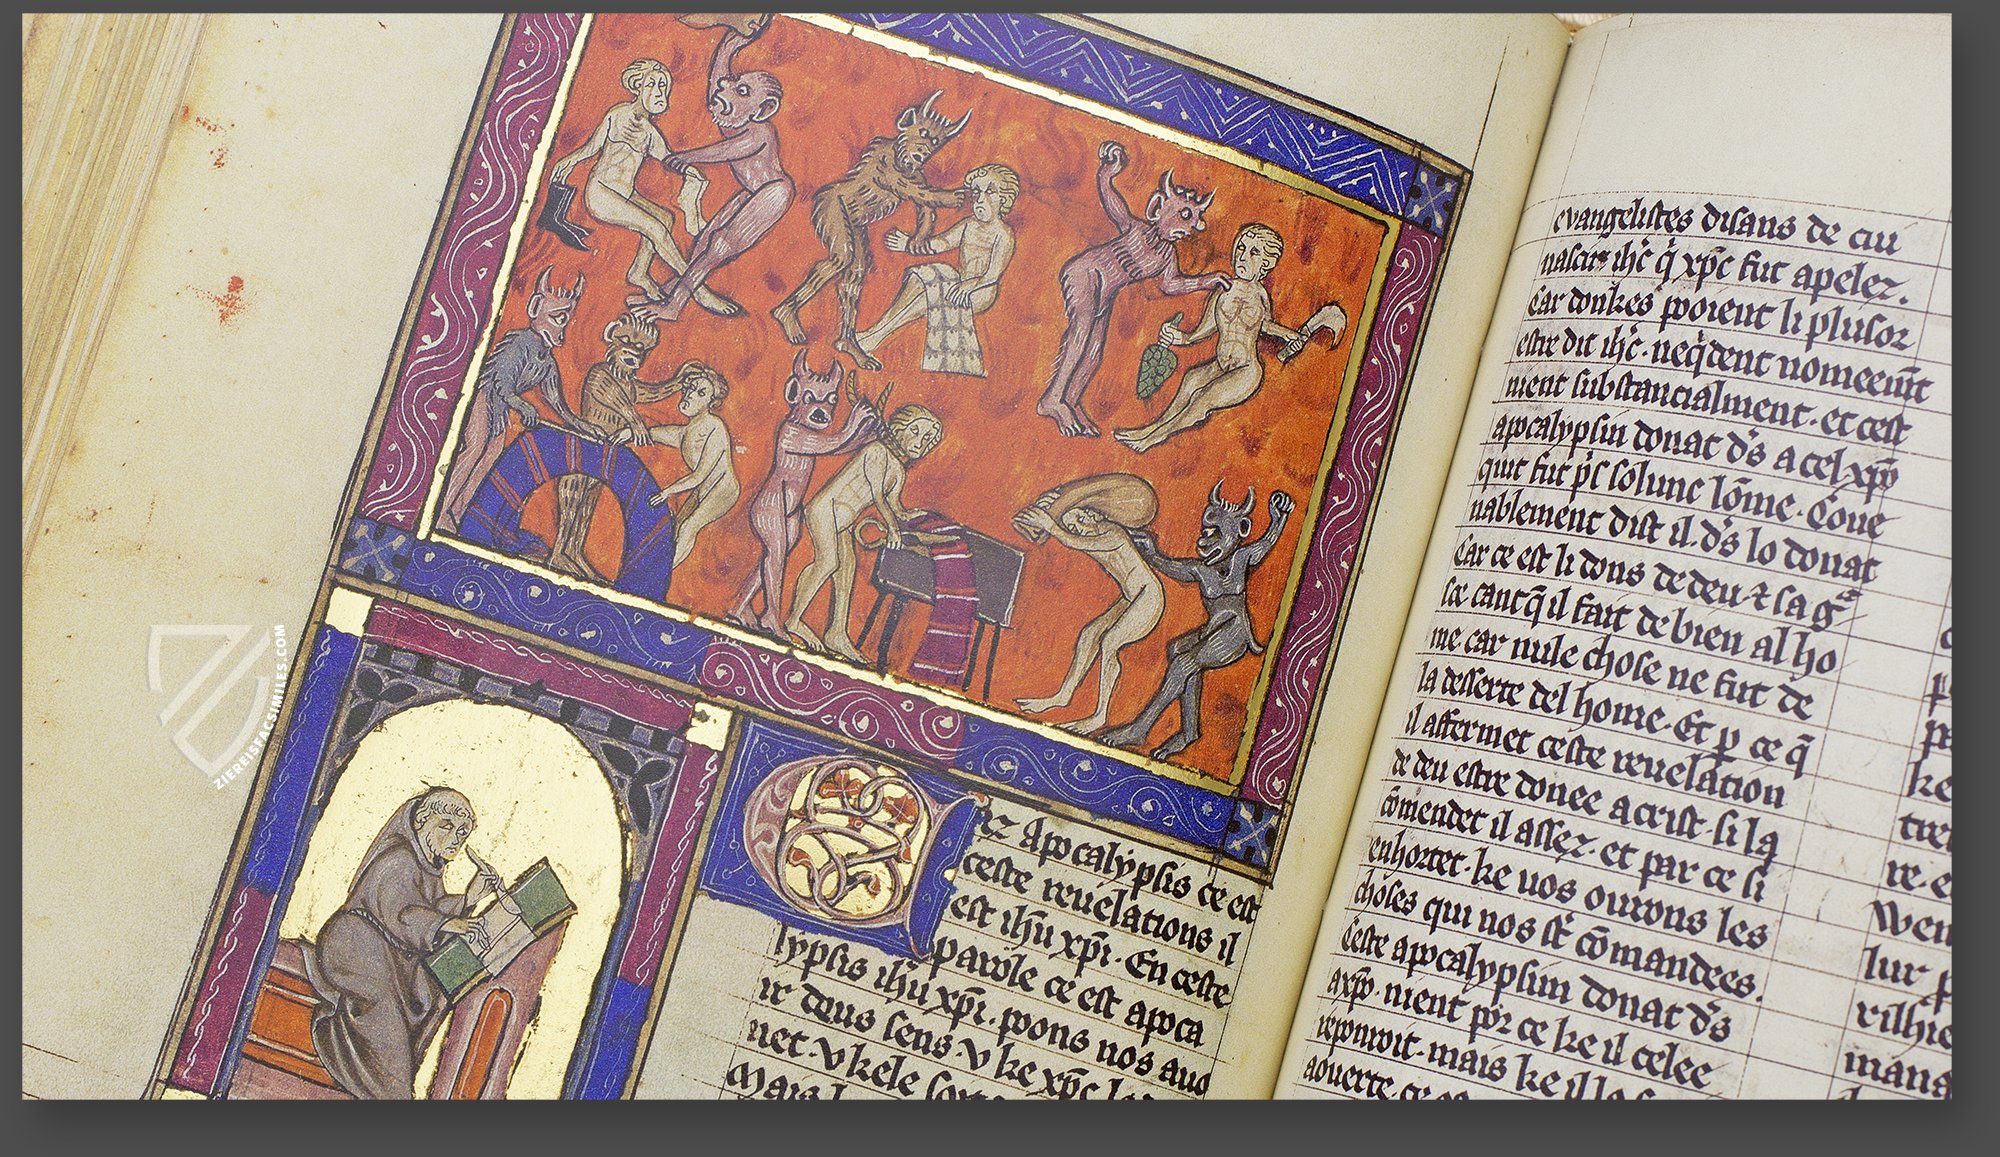 ar Apocalypsis ce est
ceste reuelations il
est ihu xpi. En ceste
parole ce est apoca
lypsis ihu xpi. poons nos auo
ir deus sens. v ke xpc
uet. v kele
Mais
evangelistes disans de cui
nascit ihc q xpc fut apelez.
Car donkes pooient li plusor
estre dit ihc. neqdent nomeemt
nient substantialment. et cest
apocalypsin donat ds a cel xpo
quit fut pc solunc lome. Coue
nablement dist il. ds lo donat
Car ce est li dons de deu ⁊ sa gce
ce cantq il fait de bien al ho
me car nule chose ne fut de
la desserte del home. Et p ce q
il affermet ceste reuelation
de deu estre donee a crist. si la
comendet il assez. et par ce si
enhortet. ke uos ourons les
choses qui nos st comandees.
Ceste apocalypsin donat ds
a xpo. nient por ce ke il celee
reponoit. mais ke il la
aouerte. ce
ke
tre
re. e
Wen
lur
rilhie
mana
ZIEREISFACSIMILES.COM